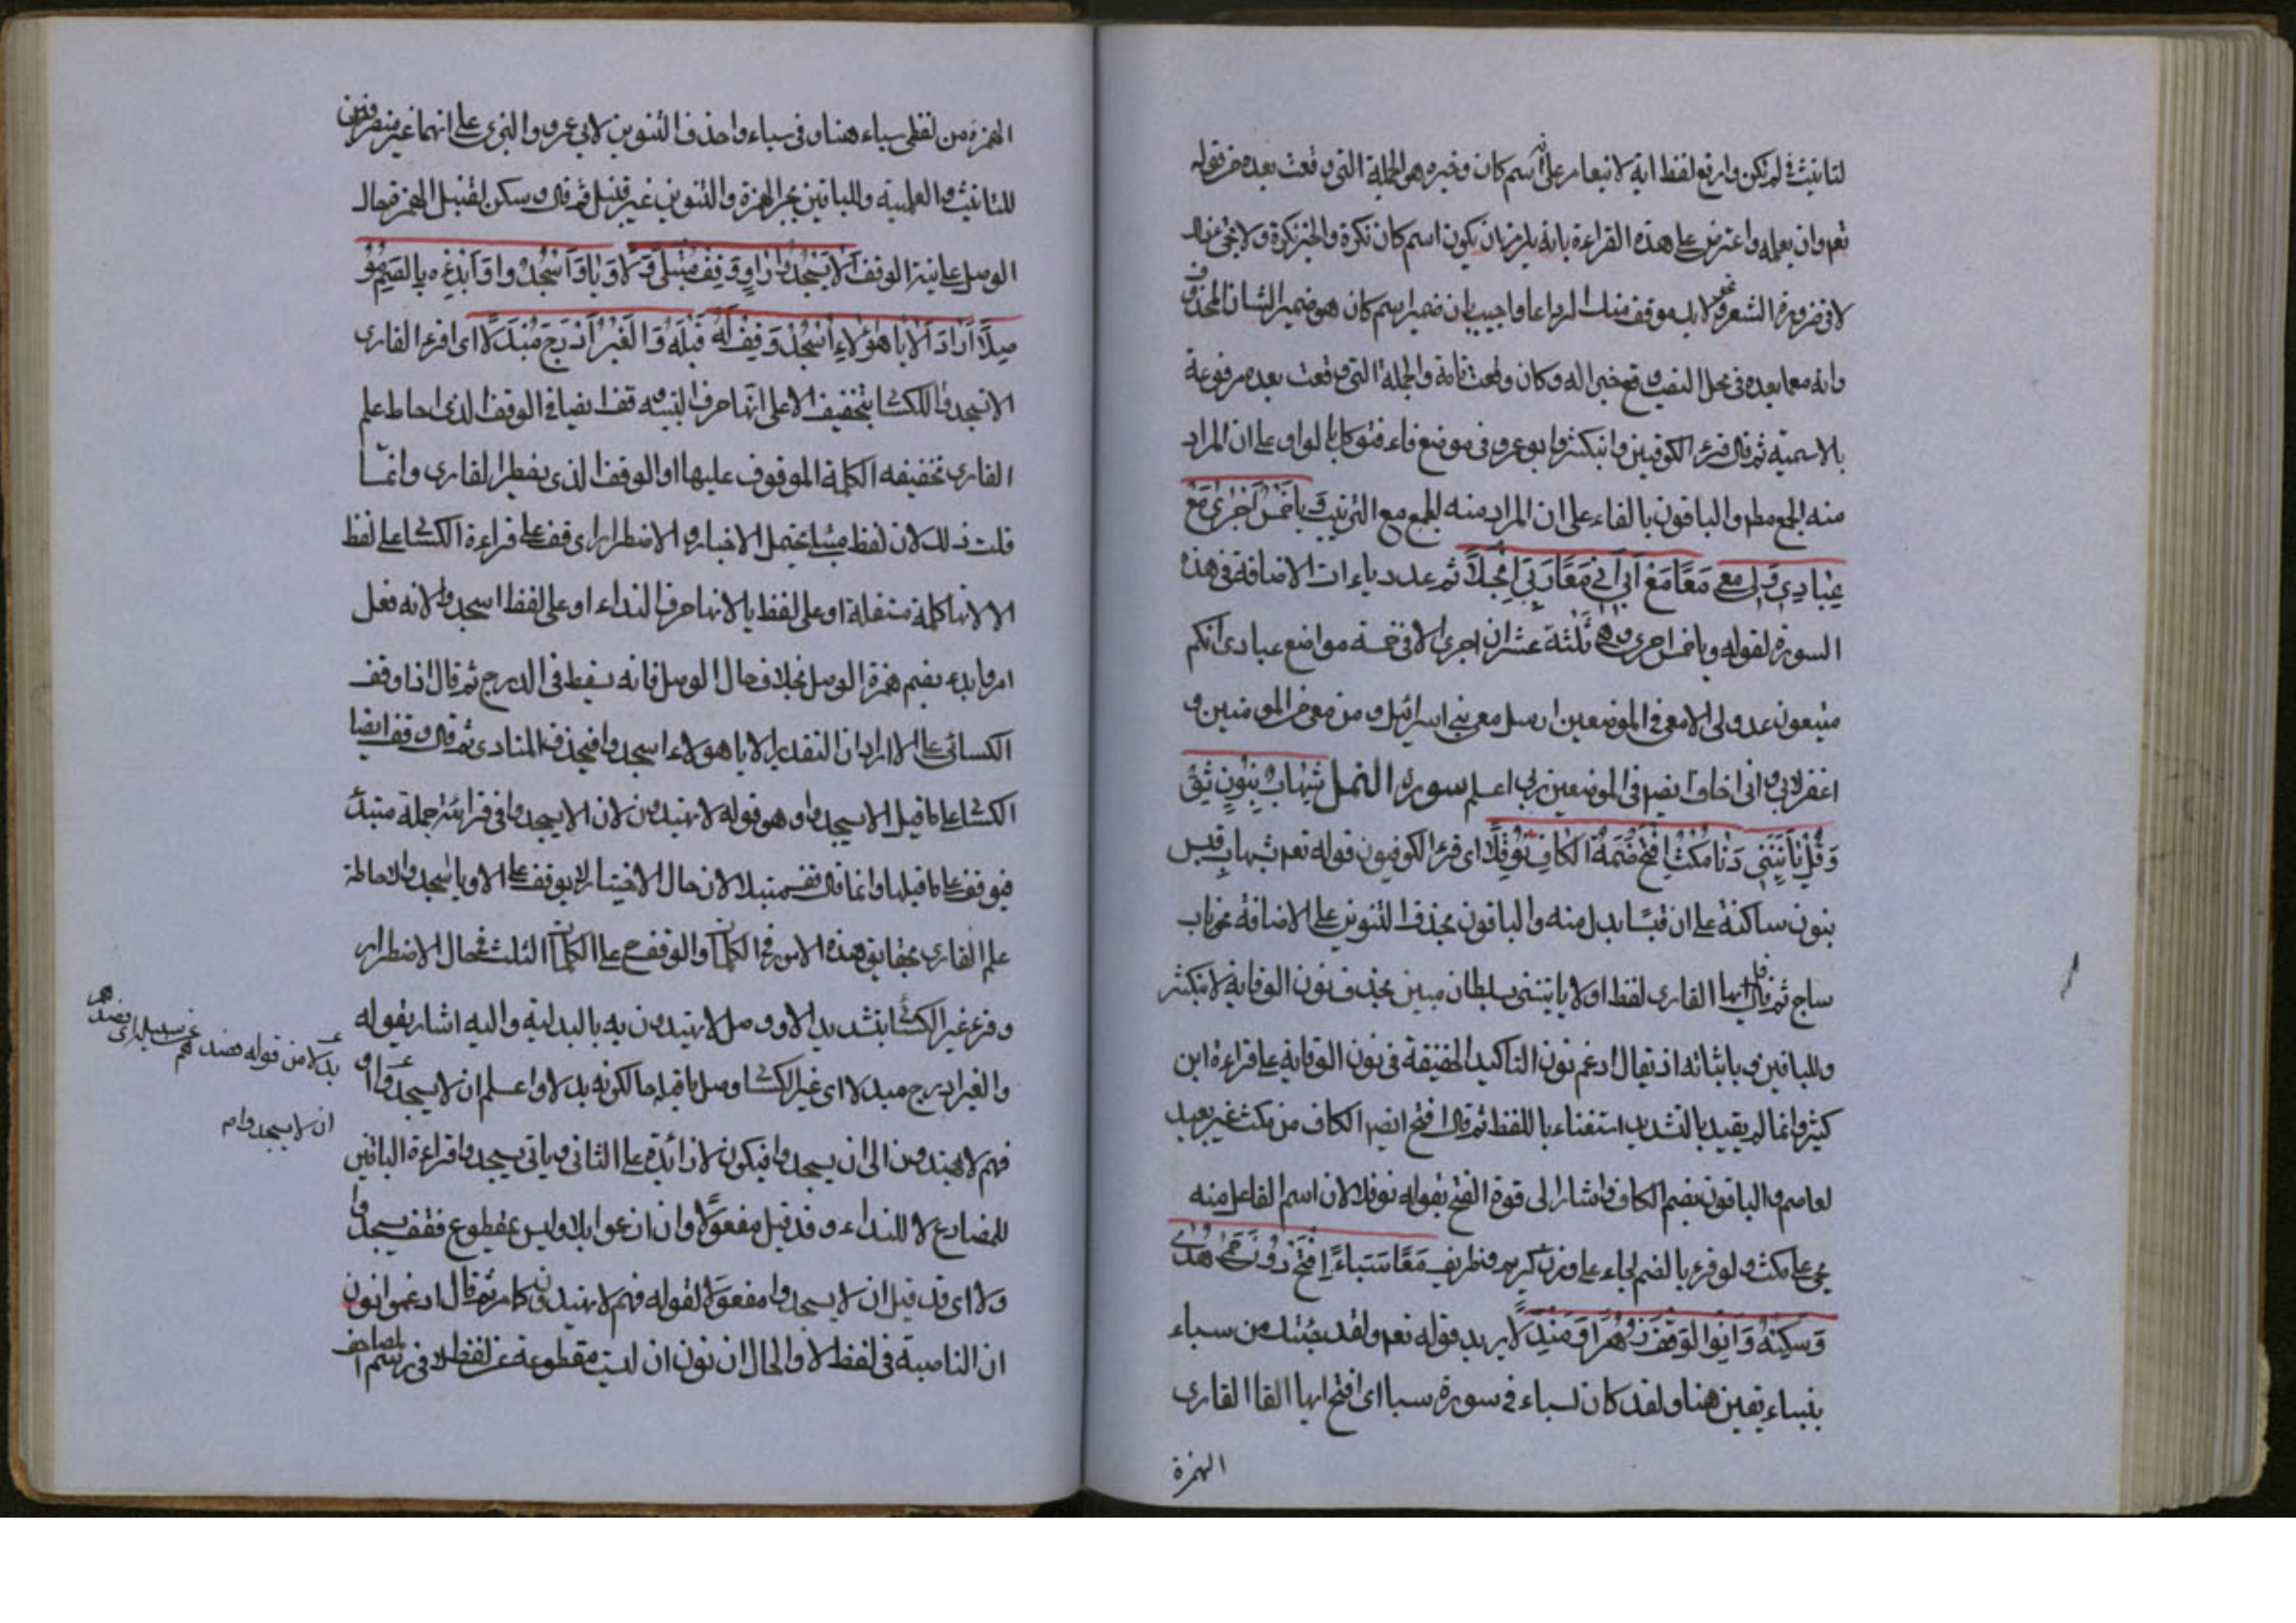 لتانيث في لم تكن وارفع لفظ اية لابن عامر على انه اسم كان وخبره هي الجملة التي وقعت بعده خبر قوله
تعم وان يعلمه واعترض على هذه القراءة بانه يلزم ان يكون اسم كان نكرة والخبر نكرة ولا يجئ
لا في ضرورة الشعر نحو ولا يك موقف منك الوداعا واجيب بان ضمير اسم كان هو ضمير الشان المحذوف
وانه مع ما بعده في محل النصب وقع خبرا له وكان وقعت تامة والجملة التي وقعت بعده مرفوعة
بالاسمية ثم قال قرئ الكوفيين وابن كثير وابو عمرو في موضع فاء فتوكل بالواو على ان المراد
منه الجمع مطم والباقون بالفاء على ان المراد منه الجمع مع الترتيب وَيا خَمْسٍ اَجْرِيَ مَعْ
عِبَادِي وَلِي مَعِي مَعًا مَعْ اَبِي اِنِّي مَعًا رَبِّيَ انْجَلَا ثم عدد ياءات الاضافة في هذه
السورة لقوله ويا خمس اجري وهي ثلثة عشر ان اجري الا في خمسة مواضع عبادي انكم
متبعون عدو لي الا معي في الموضعين ارسل معي بني اسرائيل ومن معي من المومنين و
اغفر لابي واني اخاف ايضا في الموضعين ربي اعلم سورة النمل شِهَابٍ بِنُونٍ ثِقْ
وَقُلْ يَأتِيَنَّنِي دَنَا مَكُثَ افْتَحْ ضَمَّةَ الْكَافِ نَوْفَلَا اى قرء الكوفيون قوله تعم بشهاب قبس
بنون ساكنة على ان قبسا بدل منه والباقون بحذف التنوين على الاضافة نحو باب
ساج ثم قال ايها القارى لفظ اولا ياتينني بسلطان مبين بحذف نون الوقاية لابن كثير
وللباقين وباثباته اذ يقال ادغم نون التاكيد الخفيفة في نون الوقاية على قراءة ابن
كثير وانما لم يقيد بالتشديد استغناء باللفظ ثم قال افتح ايضا الكاف من مكث غير بعيد
لعاصم والباقون بضم الكاف واشار الى قوة الفتح بقوله نوفلا لان اسم الفاعل منه
يجئ على مكث ولو قرء بالضم لجاء على وزن كريم وظريف مَعًا سَبَاءَ افْتَحْ دُونَ نُونٍ حِمًى هُدًى
وَسَكِّنْهُ وَانْوِ الوَقْفَ زُهْرًا وَمَنْدَلَا يريد قوله تعم ولقد جئتك من سباء
بنباء يقين هنا ولقد كان لسباء في سورة سبا اى افتح ايها القارى
الهمزة
الهمزة من لفظى سباء هنا وفي سباء واحذف التنوين لابي عمرو والبزى على انهما غير منصرفين
للتانيث والعلمية وللباقين بجر الهمزة والتنوين غير قنبل ثم قال وسكن لقنبل الهمزة حال
الوصل على نية الوقف اَلَا يَسْجُدُوا رَاوٍ وَقِفْ مُبْتَلًى اَلَا وَيَا وَاسْجُدُوا وَابْدَأهُ بِالضَّمِّ مُوْ
صِلًا اَرَادَ اَلَا يَا هٰؤُلَاءِ اسْجُدُوا وَقِفْ لَهُ قَبْلَهُ وَالْغَيْرُ اَدْرَجَ مُبْدِلَا اى اقرء القارى
الا يسجدوا للكسا بتخفيف الا على انها حرف التنبيه وقف ايضا في الوقف الذى احاط علم
القارى تخفيفه الكلمة الموقوف عليها او الوقف الذى يضطر القارى وانما
قلت ذلك لان لفظ مبتلى يحتمل الاخبار والاضطرار اى قف على قراءة الكسا على لفظ
الا لانها كلمة مستقلة او على لفظ يا لانها حرف النداء او على لفظ اسجدوا لانه فعل
امر وابدء بضم همزة الوصل بخلاف حال الوصل فانه يسقط في الدرج ثم قال اذا وقف
الكسائي على الا اراد ان التقدير الا يا هولاء اسجدوا فيحذف المنادى ثم قال وقف ايضا
الكسا على ما قبل الا يسجدوا وهو قوله لا يهتدون لان الا يسجدوا في قرائته جملة مبتدأ
فيوقف على ما قبلها وانما قال قف مبتلا لان حال الاختيار لا يوقف على الا ويا اسجدوا لاحاطة
علم القارى بحقايق هذه الامور في الكلمات والوقف ح على الكلمات الثلث في حال الاضطرار
وقرء غير الكسا بتشديد الا ووصل لا يهتدون به بالبداية واليه اشار بقوله
والغير ادرج مبدلا اى غير الكسا وصل ما قبله حال كونه بدلا واعلم ان لا يسجدوا
فهم لا يهتدون الى ان يسجدوا فيكون لا زائدة على الثاني وياتي يسجدوا قراءة الباقين
للمضارع لا للنداء وقد قيل مفعولا وان ادغموا بلا وليس بمقطوع فقف يسجدوا
ولا اى قد قيل ان لا يسجدوا مفعولا لقوله فهم لا يهتدون كما مر ثم قال ادغموا نون
ان الناصبة في لفظ لا والحال ان نون ان ليست مقطوعة عن لفظ لا في رسم المصاحف
بدلا من قوله فصدهم عن السبيل اى فصدهم
ان لا يسجدوا م